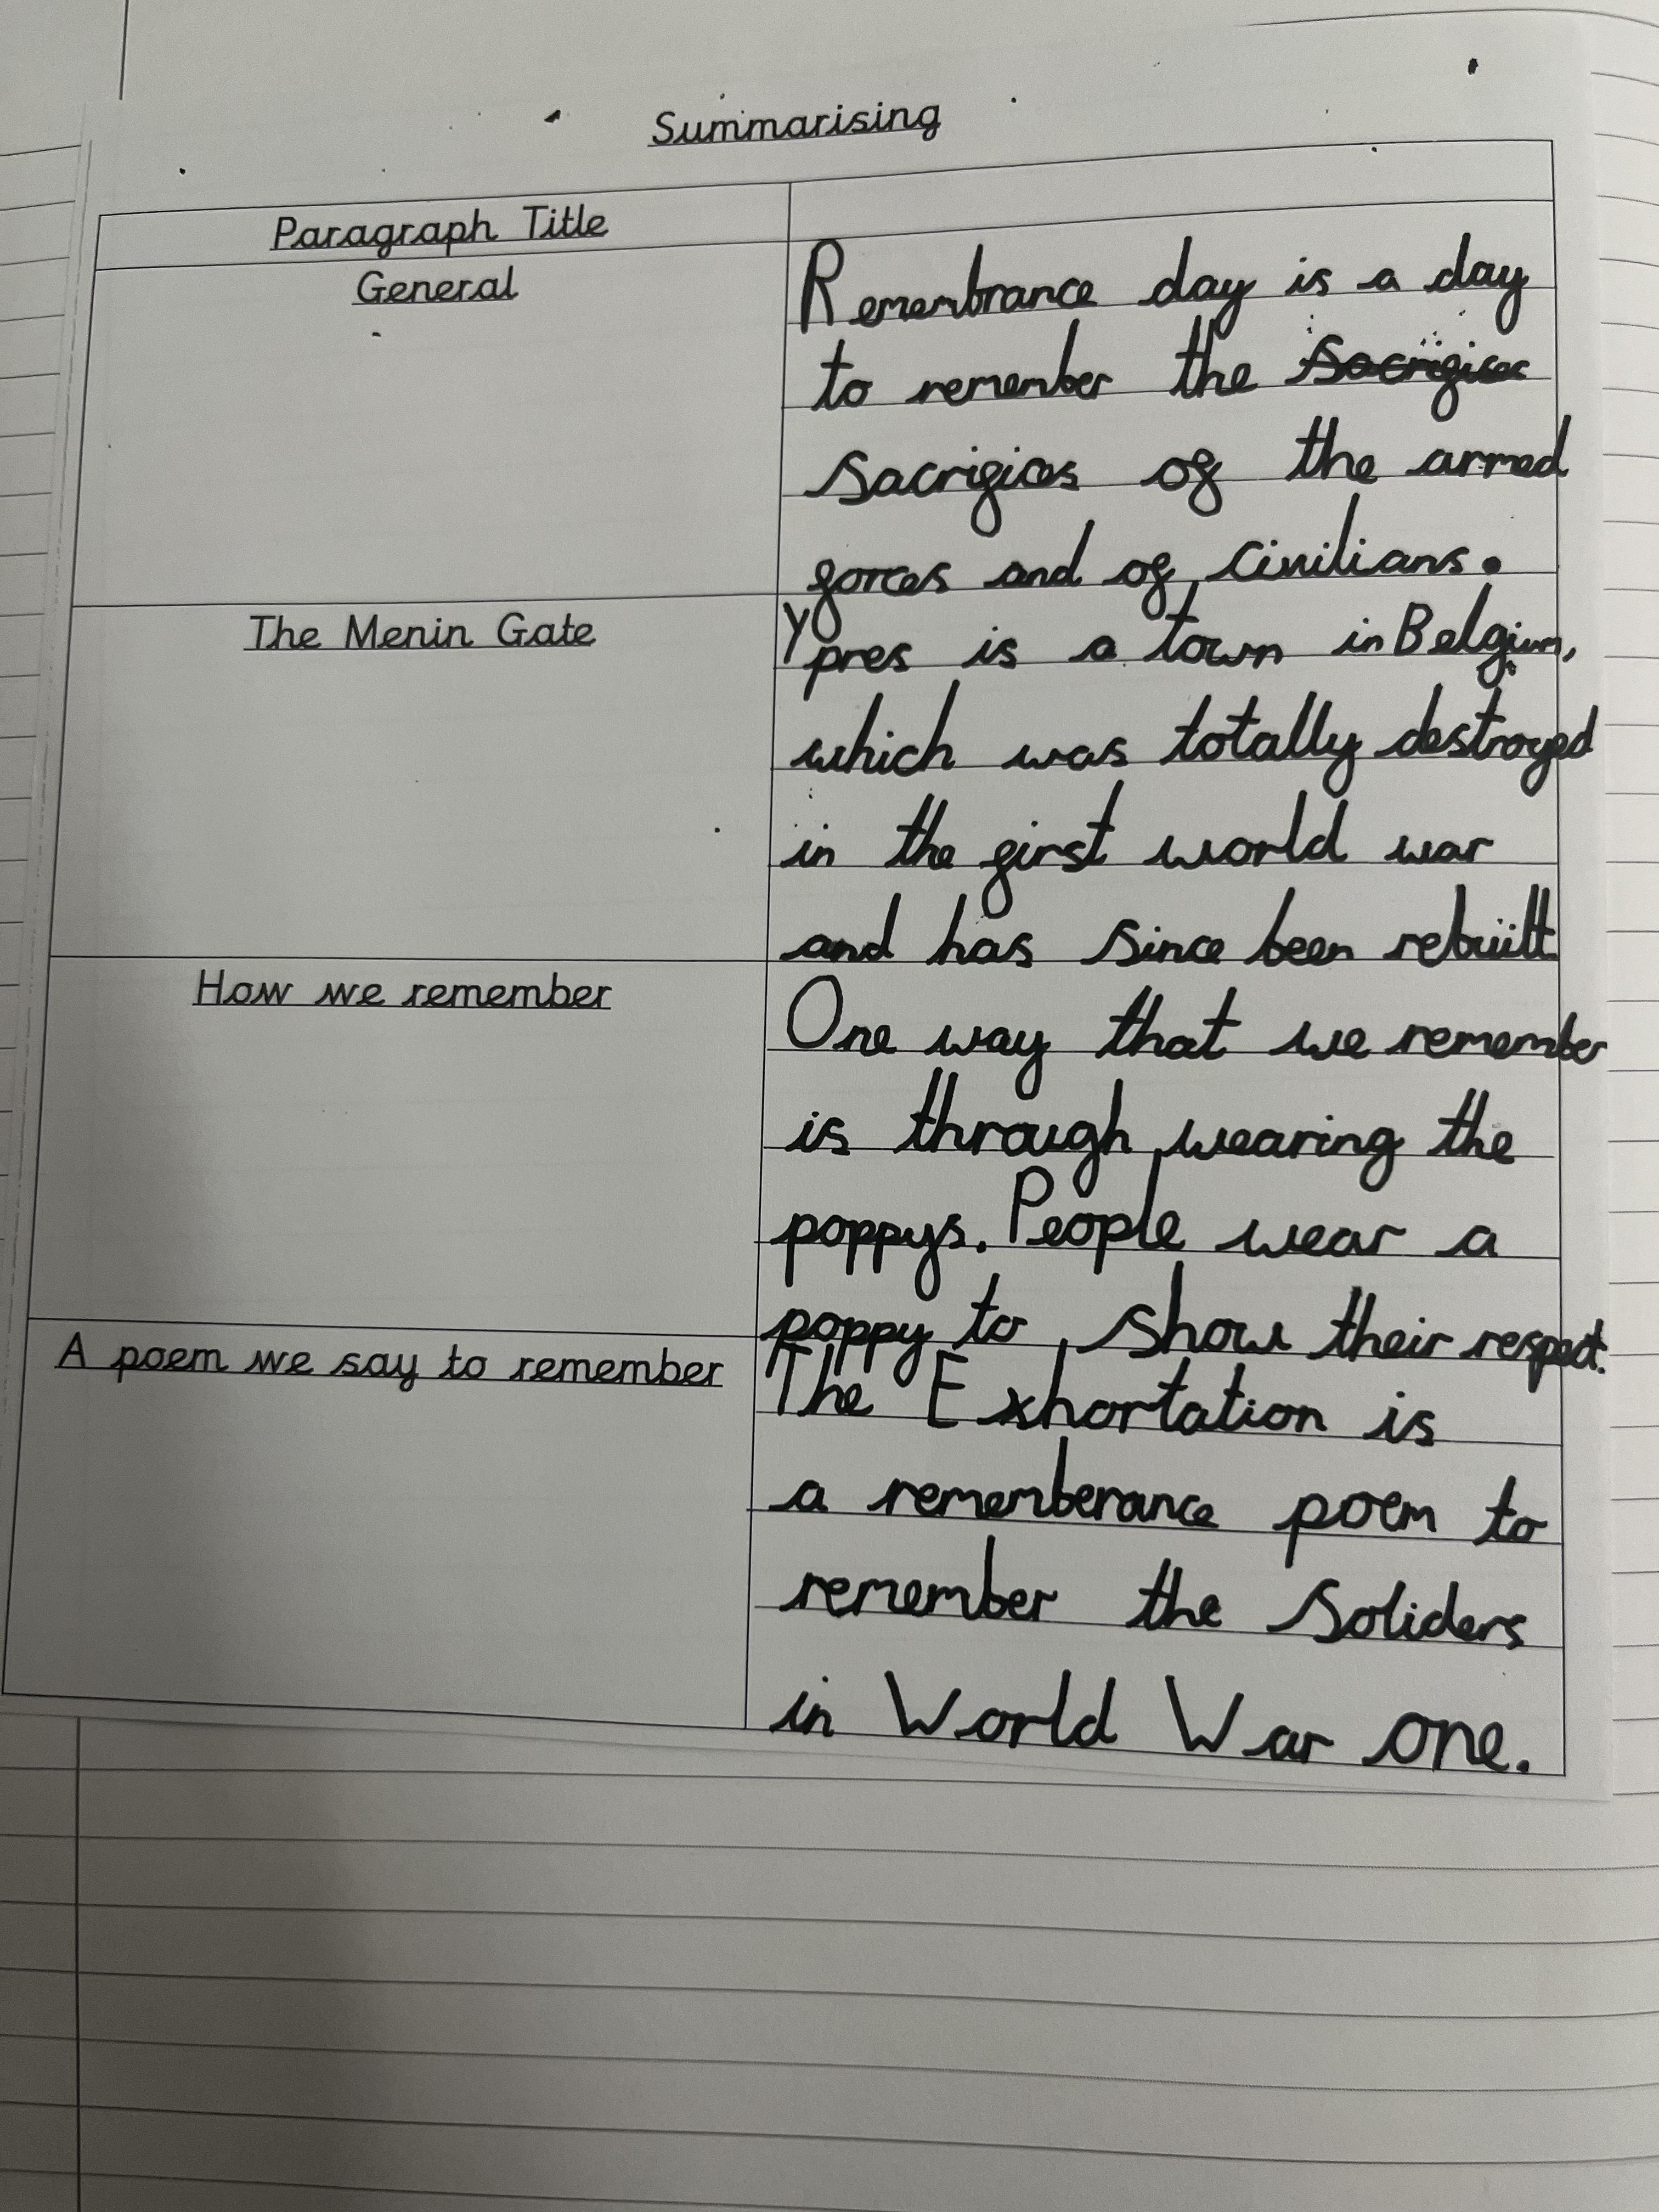 Summarising
Paragraph Title
General
Remembrance day is a day
to remember the sacrifices
sacrifices of the armed
forces and of civilians.
The Menin Gate
Ypres is a town in Belgium,
which was totally destroyed
in the first world war
and has since been rebuilt
How we remember
One way that we remember
is through wearing the
poppys. People wear a
poppy to show their respect.
A poem we say to remember
The Exhortation is
a rememberance poem to
remember the soliders
in World War one.